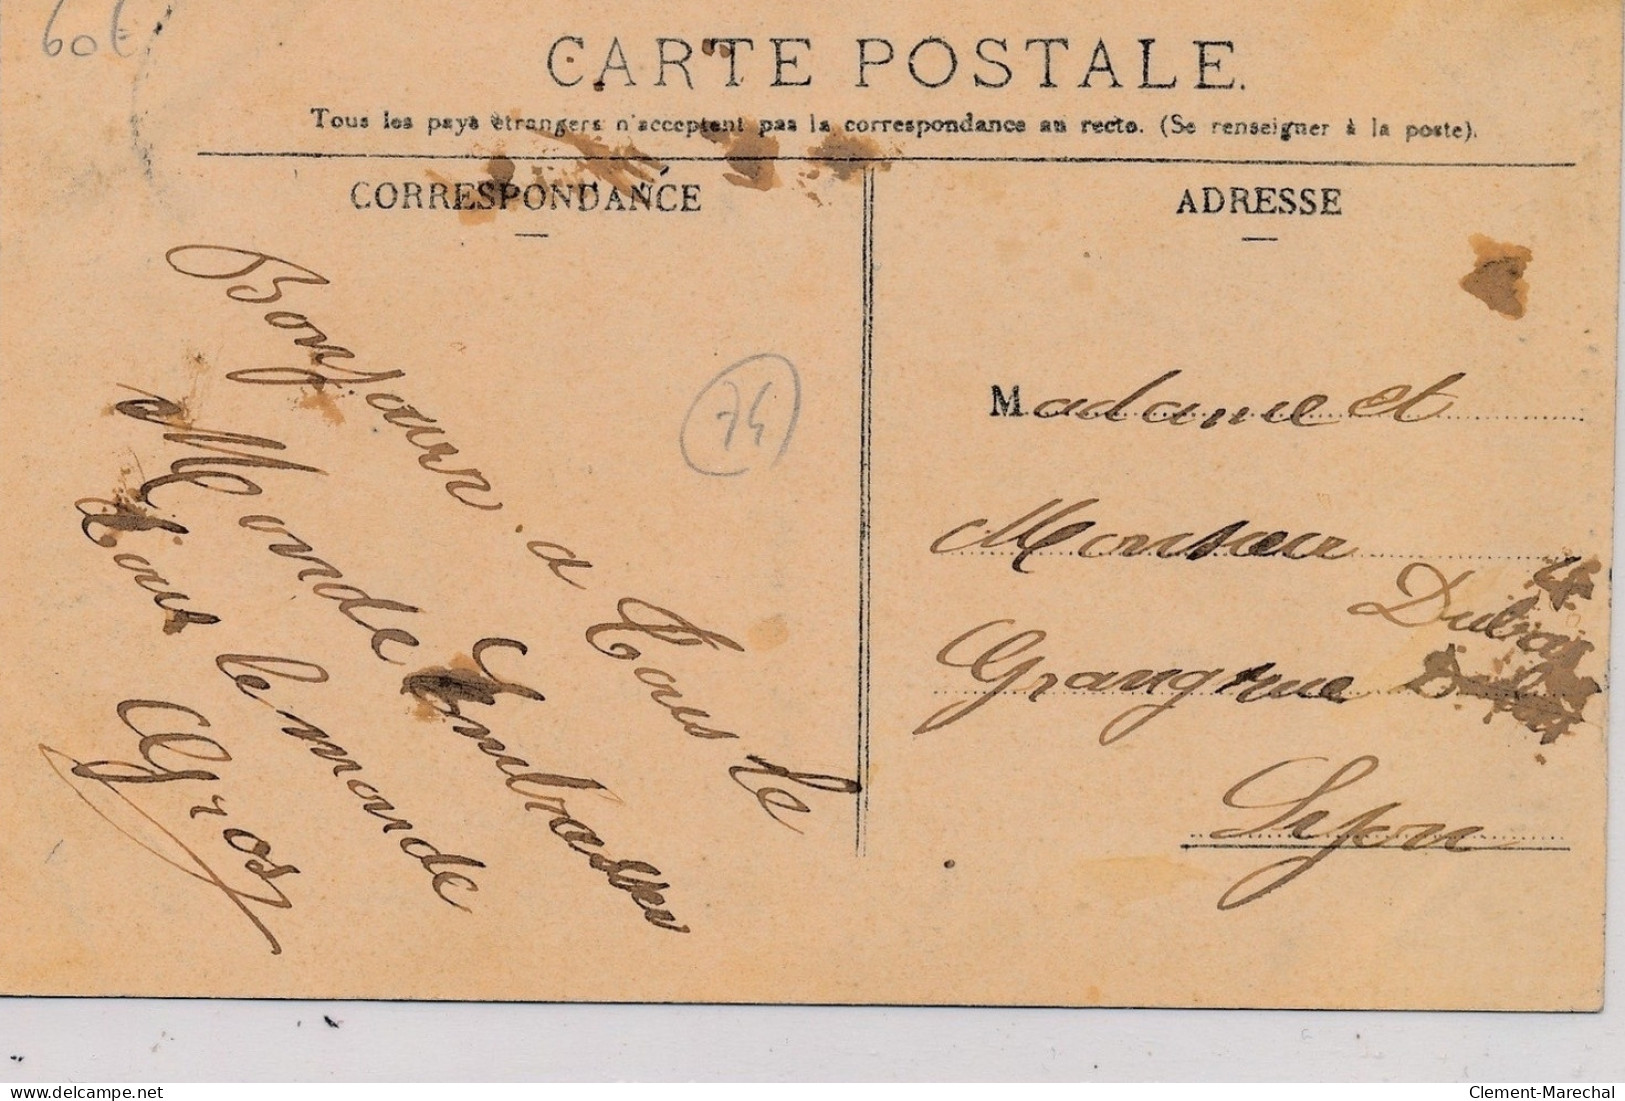 60€
CARTE POSTALE.
Tous les pays étrangers n'acceptent pas la correspondance au recto. (Se renseigner à la poste).
CORRESPONDANCE
ADRESSE
Bonjour a Tous le
Monde Embrasser
Tout le monde
Gros
74
Madame et
Monsieur
Grangrue
Lyon
delcampe.net
Clement-Marechal